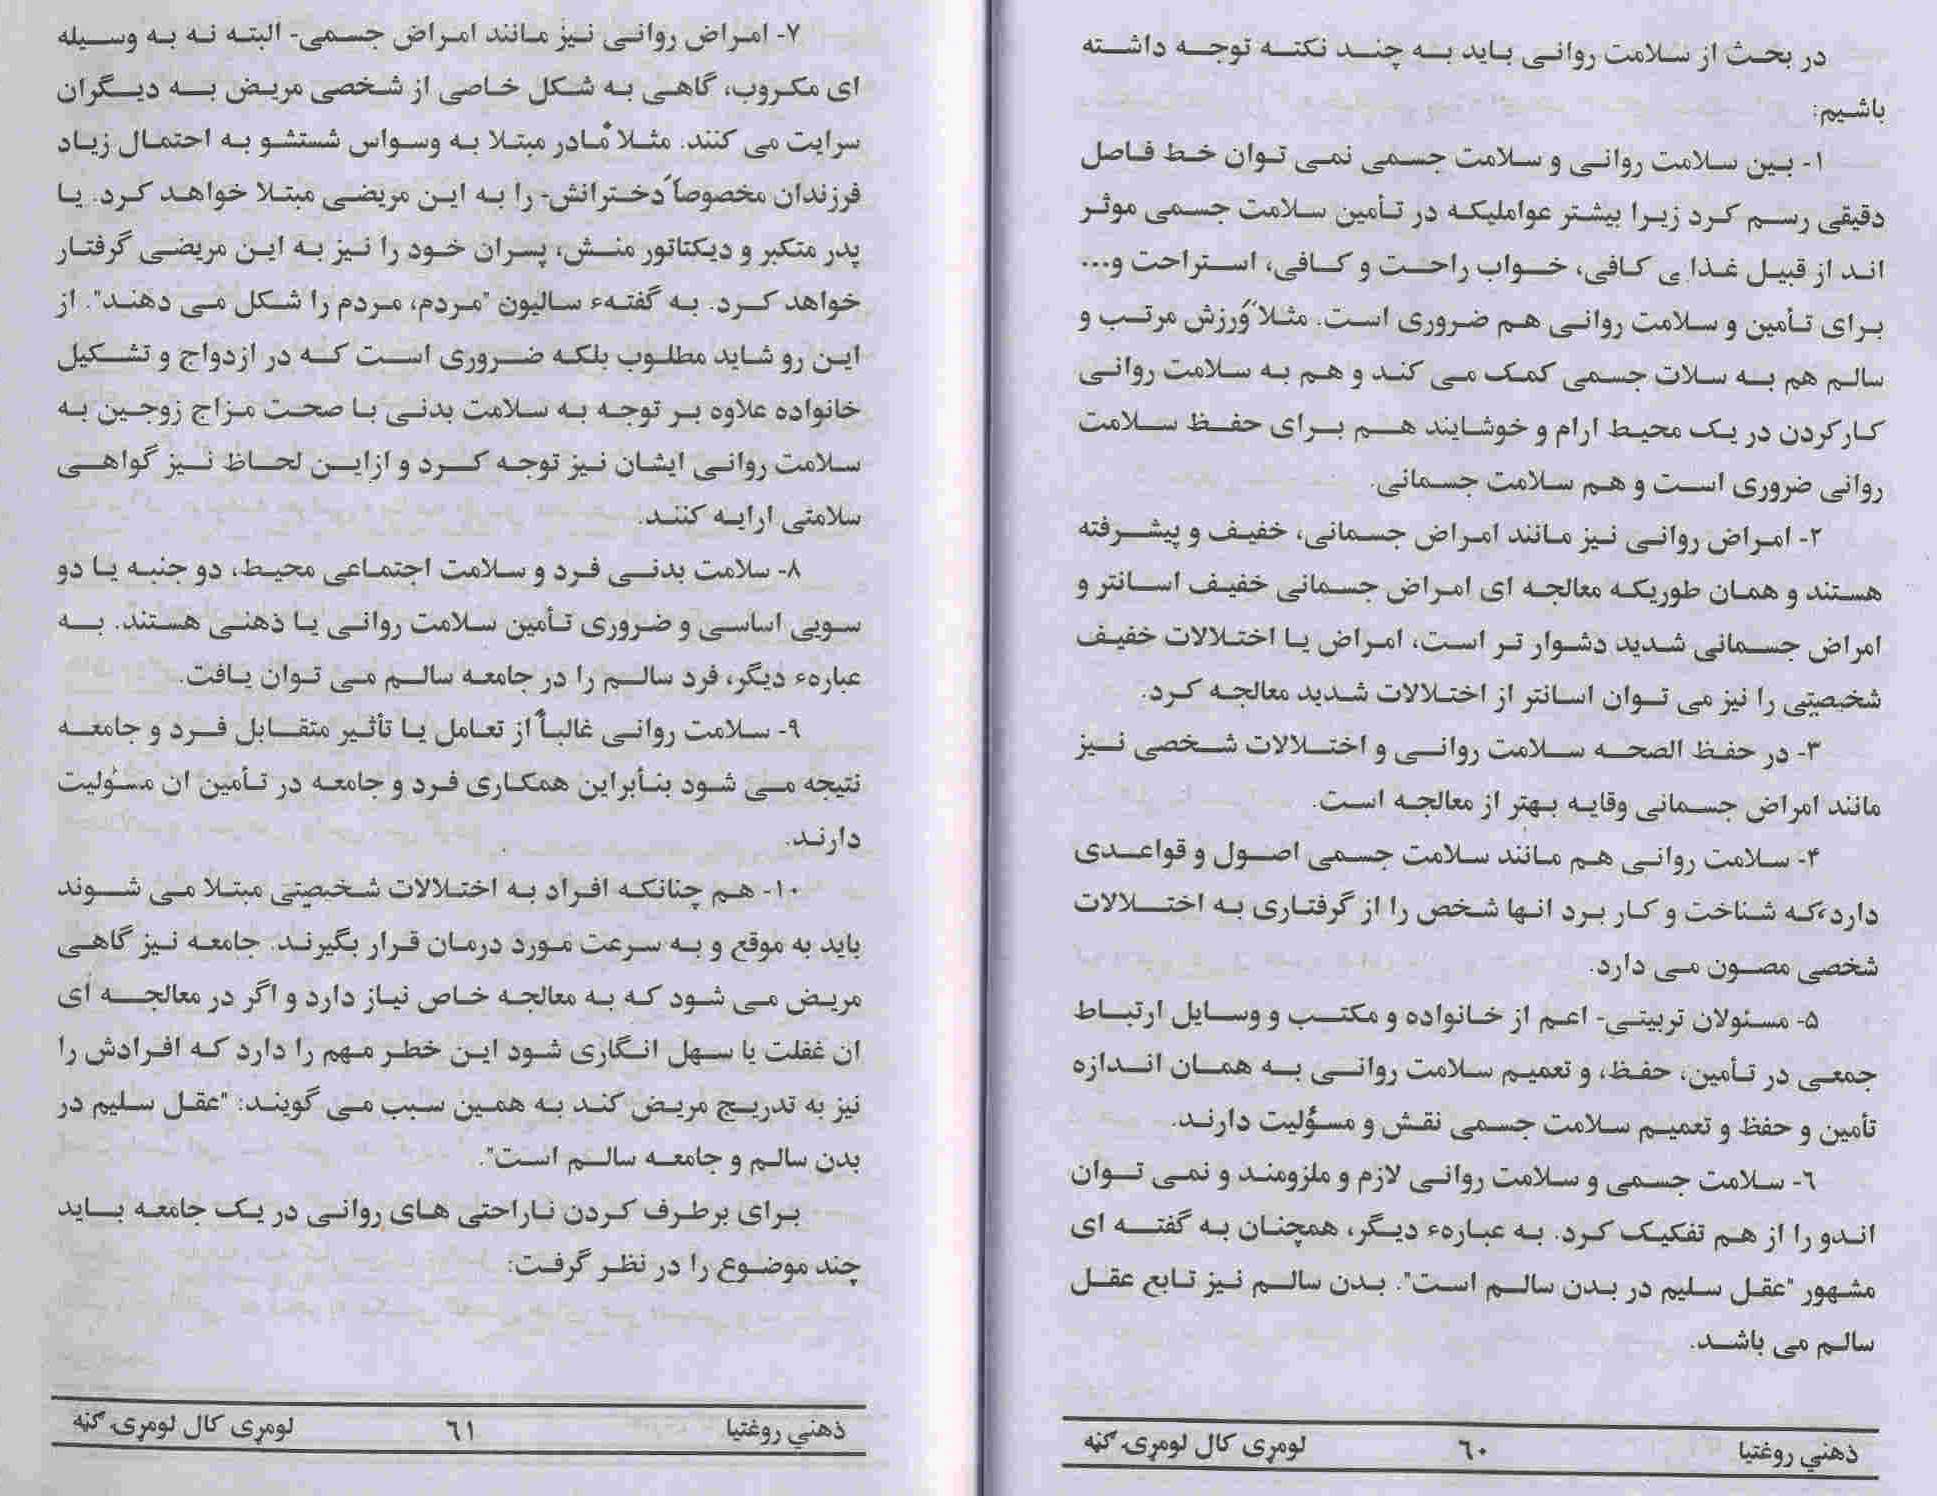 در بحث از سلامت روانی باید به چند نکته توجه داشته
باشیم:
۱- بین سلامت روانی و سلامت جسمی نمی توان خط فاصل
دقیقی رسم کرد زیرا بیشتر عواملیکه در تأمین سلامت جسمی موثر
اند از قبیل غذا ی کافی، خواب راحت و کافی، استراحت و...
برای تأمین و سلامت روانی هم ضروری است. مثلاً ورزش مرتب و
سالم هم به سلات جسمی کمک می کند و هم به سلامت روانی
کارکردن در یک محیط ارام و خوشایند هم برای حفظ سلامت
روانی ضروری است و هم سلامت جسمانی.
۲- امراض روانی نیز مانند امراض جسمانی، خفیف و پیشرفته
هستند و همان طوریکه معالجه ای امراض جسمانی خفیف اسانتر و
امراض جسمانی شدید دشوار تر است، امراض یا اختلالات خفیف
شخصیتی را نیز می توان اسانتر از اختلالات شدید معالجه کرد.
۳- در حفظ الصحه سلامت روانی و اختلالات شخصی نیز
مانند امراض جسمانی وقایه بهتر از معالجه است.
۴- سلامت روانی هم مانند سلامت جسمی اصول و قواعدی
دارد،که شناخت و کار برد انها شخص را از گرفتاری به اختلالات
شخصی مصون می دارد.
۵- مسئولان تربیتی- اعم از خانواده و مکتب و وسایل ارتباط
جمعی در تأمین، حفظ، و تعمیم سلامت روانی به همان اندازه
تأمین و حفظ و تعمیم سلامت جسمی نقش و مسؤلیت دارند.
٦- سلامت جسمی و سلامت روانی لازم و ملزومند و نمی توان
اندو را از هم تفکیک کرد. به عبارهء دیگر، همچنان به گفته ای
مشهور "عقل سلیم در بدن سالم است". بدن سالم نیز تابع عقل
سالم می باشد.
ذهني روغتیا ٦٠ لومړی کال لومړۍ ګڼه
۷- امراض روانی نیز مانند امراض جسمی- البته نه به وسیله
ای مکروب، گاهی به شکل خاصی از شخصی مریض به دیگران
سرایت می کنند. مثلاً مادر مبتلا به وسواس شستشو به احتمال زیاد
فرزندان مخصوصاً دخترانش- را به این مریضی مبتلا خواهد کرد. یا
پدر متکبر و دیکتاتور منش، پسران خود را نیز به این مریضی گرفتار
خواهد کرد. به گفتهء سالیون "مردم، مردم را شکل می دهند". از
این رو شاید مطلوب بلکه ضروری است که در ازدواج و تشکیل
خانواده علاوه بر توجه به سلامت بدنی با صحت مزاج زوجین به
سلامت روانی ایشان نیز توجه کرد و ازاین لحاظ نیز گواهی
سلامتی ارایه کنند.
۸- سلامت بدنی فرد و سلامت اجتماعی محیط، دو جنبه یا دو
سویی اساسی و ضروری تأمین سلامت روانی یا ذهنی هستند. به
عبارهء دیگر، فرد سالم را در جامعه سالم می توان یافت.
۹- سلامت روانی غالباً از تعامل یا تأثیر متقابل فرد و جامعه
نتیجه می شود بنأبراین همکاری فرد و جامعه در تأمین ان مسئولیت
دارند.
۱۰- هم چنانکه افراد به اختلالات شخصیتی مبتلا می شوند
باید به موقع و به سرعت مورد درمان قرار بگیرند. جامعه نیز گاهی
مریض می شود که به معالجه خاص نیاز دارد و اگر در معالجه ای
ان غفلت یا سهل انگاری شود این خطر مهم را دارد که افرادش را
نیز به تدریج مریض کند به همین سبب می گویند: "عقل سلیم در
بدن سالم و جامعه سالم است".
برای برطرف کردن ناراحتی های روانی در یک جامعه باید
چند موضوع را در نظر گرفت:
ذهني روغتیا ٦١ لومړی کال لومړۍ ګڼه